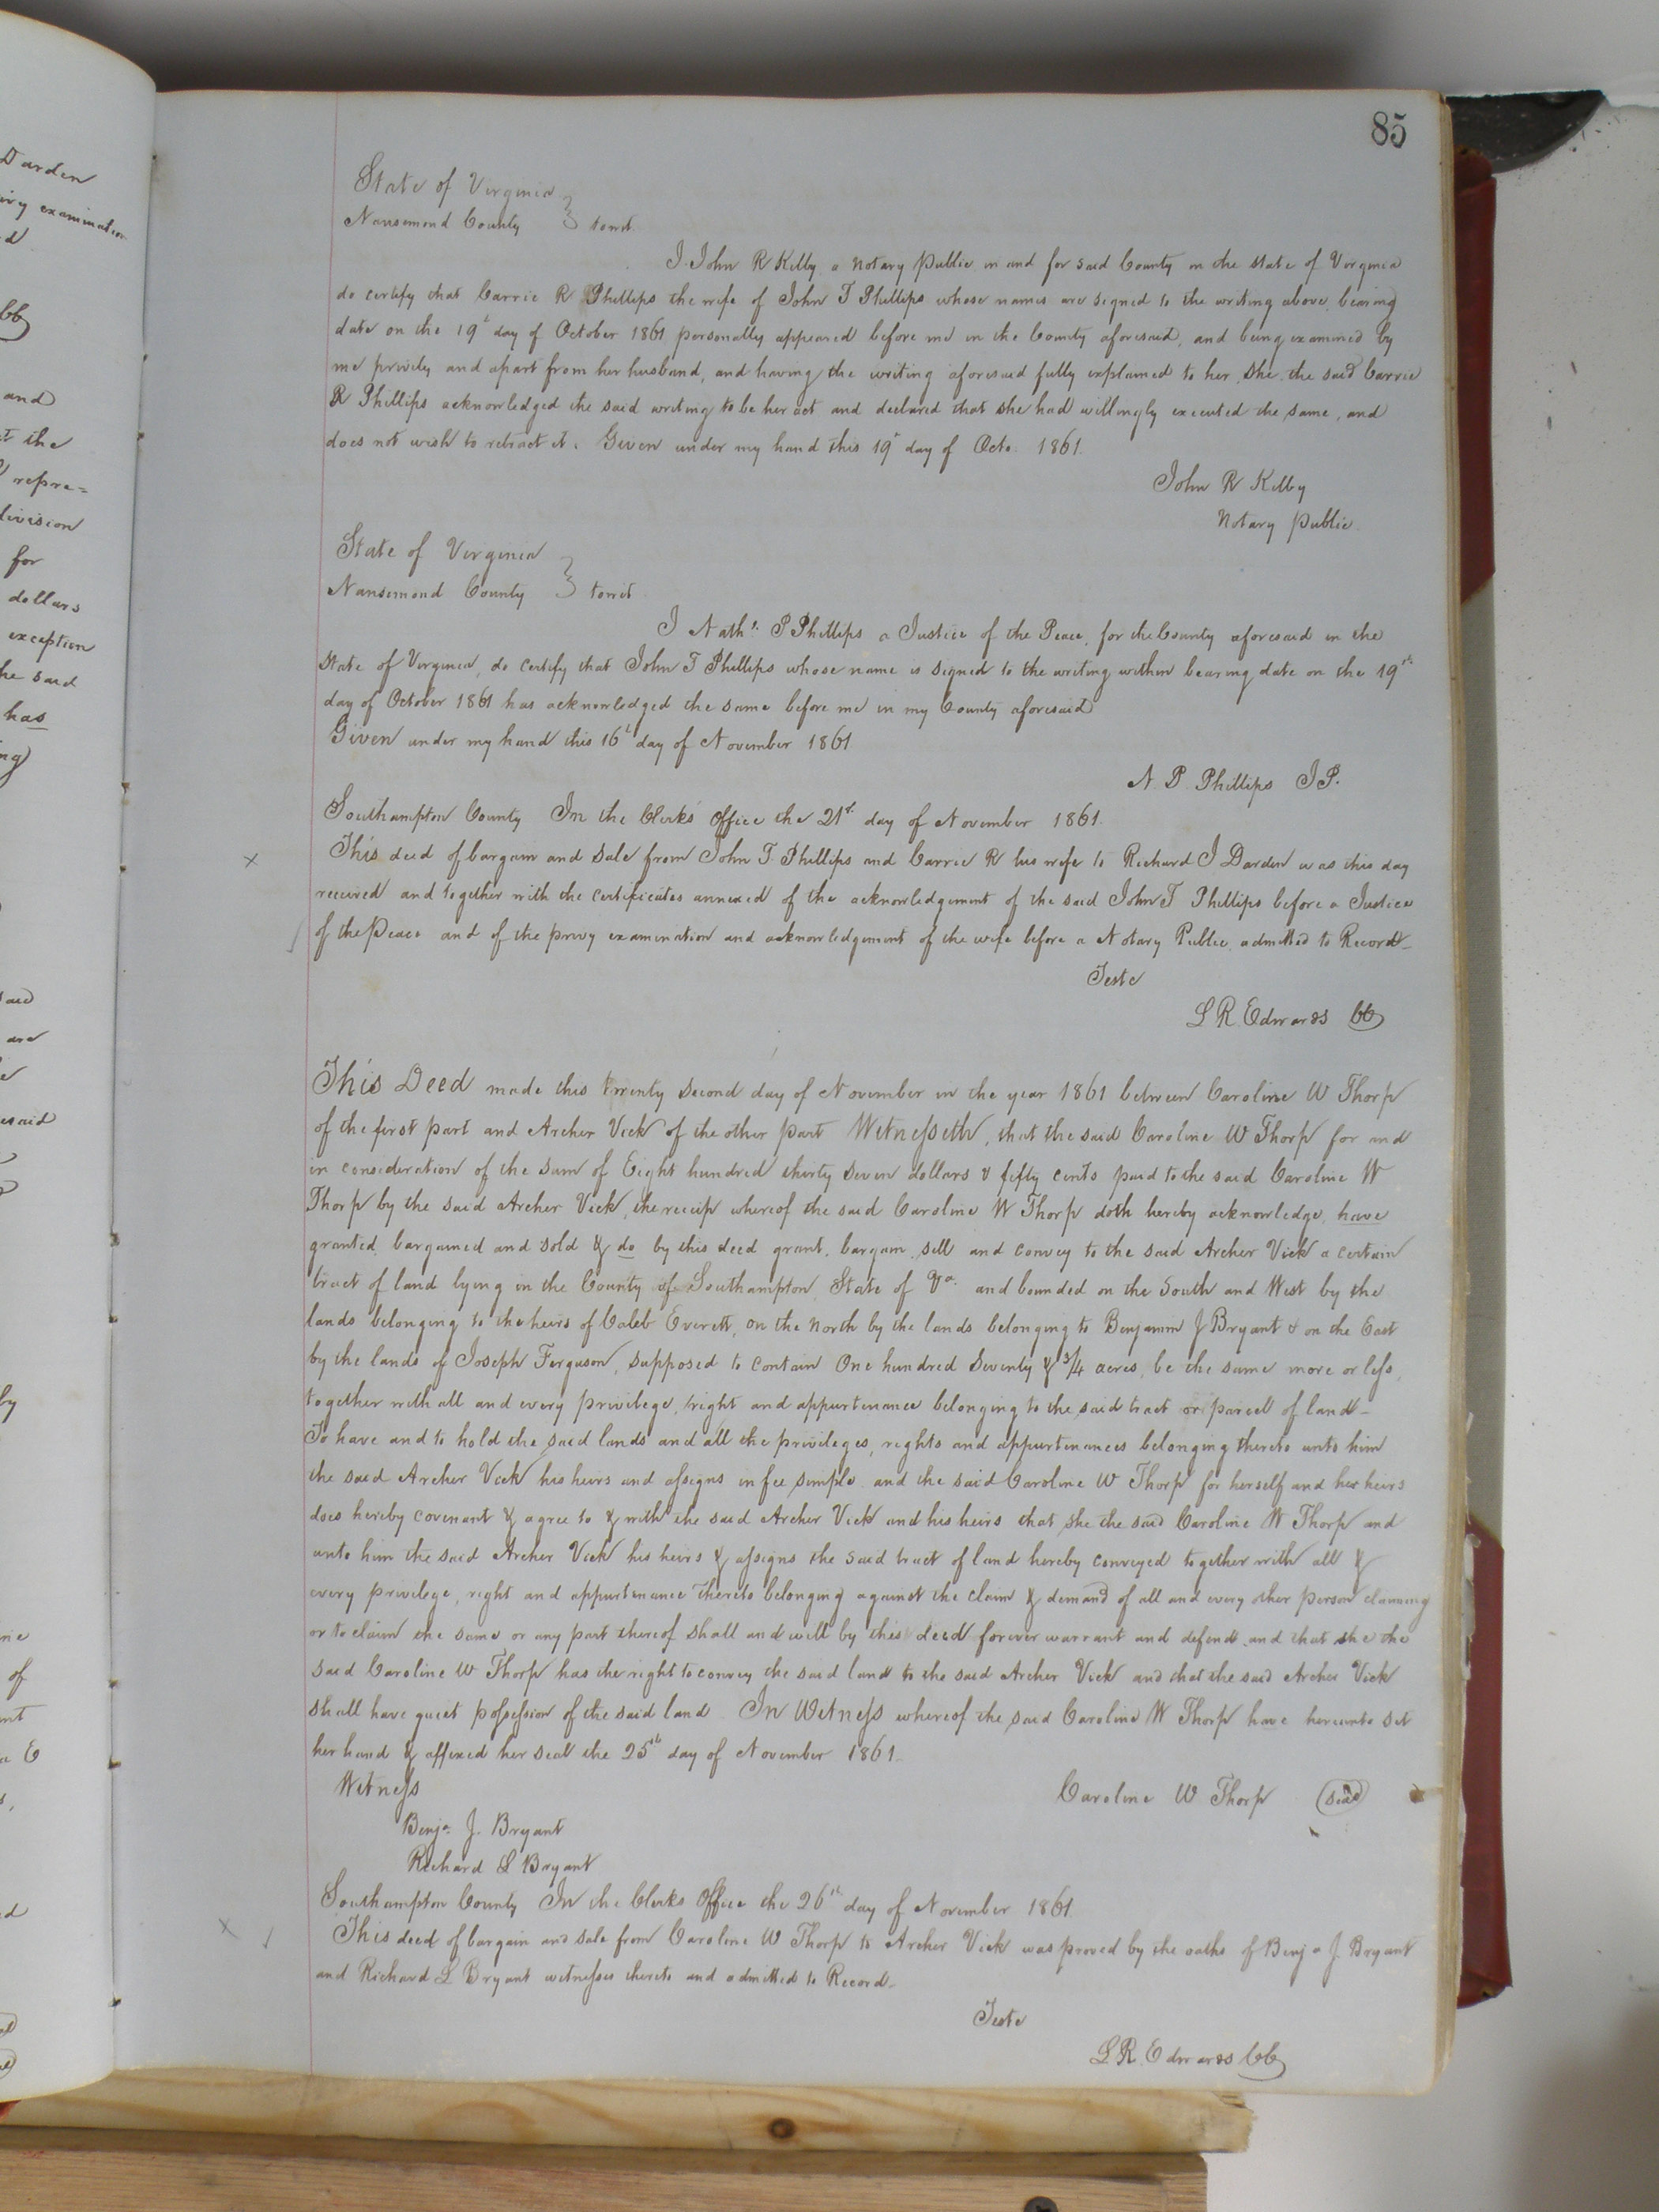 85
State of Virginia
Nansemond County } towit
I John R Kilby a Notary Public in and for said County in the State of Virginia
do certify that Carrie R Phillips the wife of John T Phillips whose names are signed to the writing above bearing
date on the 19th day of October 1861 personally appeared before me in the County aforesaid, and being examined by
me privily and apart from her husband, and having the writing aforesaid fully explained to her, she the said Carrie
R Phillips acknowledged the said writing to be her act and declared that she had willingly executed the same, and
does not wish to retract it. Given under my hand this 19th day of Octo. 1861.
John R Kilby
Notary Public.
State of Virginia
Nansemond County } towit
I Nathl. P Phillips a Justice of the Peace, for the County aforesaid in the
State of Virginia, do certify that John T Phillips whose name is signed to the writing within bearing date on the 19th
day of October 1861 has acknowledged the same before me in my County aforesaid
Given under my hand this 16th day of November 1861
N. P. Phillips J.P.
Southampton County In the Clerks Office the 21st day of November 1861.
This deed of bargain and sale from John T. Phillips and Carrie R his wife to Richard J Darden was this day
received and together with the certificates annexed of the acknowledgement of the said John T Phillips before a Justice
of the Peace and of the privy examination and acknowledgement of the wife before a Notary Public, admitted to Record
Teste
L R. Edwards CC
This Deed made this twenty Second day of November in the year 1861 between Caroline W Thorp
of the first part and Archer Vick of the other part Witnesseth, that the said Caroline W Thorp for and
in consideration of the sum of Eight hundred thirty seven dollars & fifty cents paid to the said Caroline W
Thorp by the said Archer Vick, the receip whereof the said Caroline W Thorp doth hereby acknowledge, have
granted, bargained and sold & do by this deed grant, bargain, sell and convey to the said Archer Vick a certain
tract of land lying in the County of Southampton, State of Va. and bounded on the South and West by the
lands belonging to the heirs of Caleb Everett, on the North by the lands belonging to Benjamin J Bryant & on the East
by the lands of Joseph Ferguson, supposed to contain One hundred Seventy & 3/4 acres, be the same more or less,
together with all and every privilege, right and appurtenance belonging to the said tract or parcel of land
To have and to hold the said lands and all the privileges, rights and appurtenances belonging thereto unto him
the said Archer Vick his heirs and assigns in fee simple and the said Caroline W Thorp for herself and her heirs
does hereby covenant & agree to & with the said Archer Vick and his heirs that she the said Caroline W Thorp and
unto him the said Archer Vick his heirs & assigns the said tract of land hereby conveyed together with all &
every privilege, right and appurtenance thereto belonging against the claim & demand of all and every other person claiming
or to claim the same or any part thereof shall and will by this deed forever warrant and defend and that she the
said Caroline W Thorp has the right to convey the said land to the said Archer Vick and that the said Archer Vick
shall have quiet possession of the said land In Witness whereof the said Caroline W Thorp have hereunto set
her hand & affixed her seal the 25th day of November 1861.
Witness
Caroline W Thorp (seal)
Benja. J. Bryant
Richard L Bryant
Southampton County In the Clerks Office the 26th day of November 1861
This deed of bargain and sale from Caroline W Thorp to Archer Vick was proved by the oaths of Benja J. Bryant
and Richard L Bryant witnesses thereto and admitted to Record
Teste
L R. Edwards CC